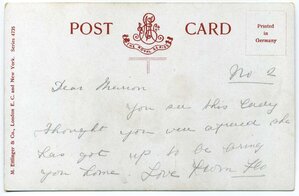 POST CARD
Printed in
Germany
M. Ettlinger & Co., London E. C. and New York. Series 4725
No 2
Dear Marion
You see this lady
thought you were afraid she
has got up to be
you home. Love from Flo